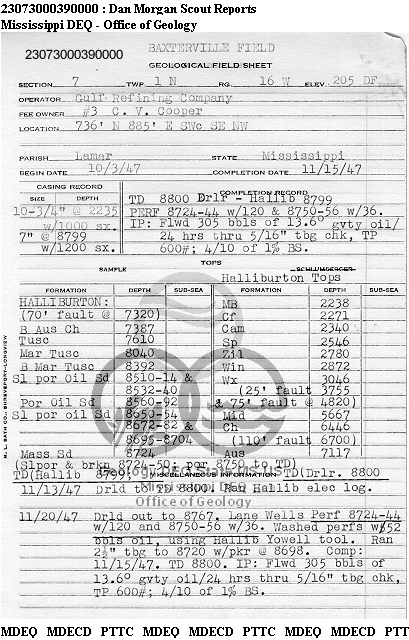 23073000390000 : Dan Morgan Scout Reports
Mississippi DEQ - Office of Geology
23073000390000
BAXTERVILLE FIELD
GEOLOGICAL FIELD SHEET
SECTION 7 TWP 1 N RG. 16 W ELEV. 205 DF
OPERATOR Gulf Refining Company
FEE OWNER #3 C. V. Cooper
LOCATION 736' N 885' E SWc SE NW
PARISH Lamar STATE Mississippi
BEGIN DATE 10/3/47 COMPLETION DATE 11/15/47
CASING RECORD
SIZE DEPTH
10-3/4" @ 2235
w/1000 sx.
7" @ 8799
w/1200 sx.
COMPLETION RECORD
TD 8800 Drlr - Hallib 8799
PERF 8724-44 w/120 & 8750-56 w/36.
IP: Flwd 305 bbls of 13.6° gvty oil/
24 hrs thru 5/16" tbg chk, TP
600#; 4/10 of 1% BS.
TOPS
SAMPLE
SCHLUMBERGER
Halliburton Tops
FORMATION DEPTH SUB-SEA FORMATION DEPTH SUB-SEA
HALLIBURTON: MB 2238
(70' fault @ 7320) Cf 2271
B Aus Ch 7387 Cam 2340
Tusc 7610 Sp 2546
Mar Tusc 8040 Zil 2780
B Mar Tusc 8392 Win 2872
Sl por Oil Sd 8510-14 & Wx 3046
8532-40 (25' fault 3755
Por Oil Sd 8560-92 & 75' fault @ 4820)
Sl por Oil Sd 8650-54 Mid 5667
8672-82 & Ch 6446
8695-8704 (110' fault 6700)
Mass Sd 8724 Aus 7117
(Slpor & brkn 8724-50; por 8750 to TD)
TD(Hallib 8799; MISCELLANEOUS INFORMATION TD(Drlr. 8800
11/13/47 Drld to TD 8800. Ran Hallib elec log.
Mississippi DEQ
Office of Geology
11/20/47 Drld out to 8767. Lane Wells Perf 8724-44
w/120 and 8750-56 w/36. Washed perfs w/52
bbls oil, using Hallib Yowell tool. Ran
2½" tbg to 8720 w/pkr @ 8698. Comp:
11/15/47. TD 8800. IP: Flwd 305 bbls of
13.6° gvty oil/24 hrs thru 5/16" tbg chk,
TP 600#; 4/10 of 1% BS.
M. L. BATH CO., SHREVEPORT-LONGVIEW
MDEQ MDECD PTTC MDEQ MDECD PTTC MDEQ MDECD PTTC MDEQ